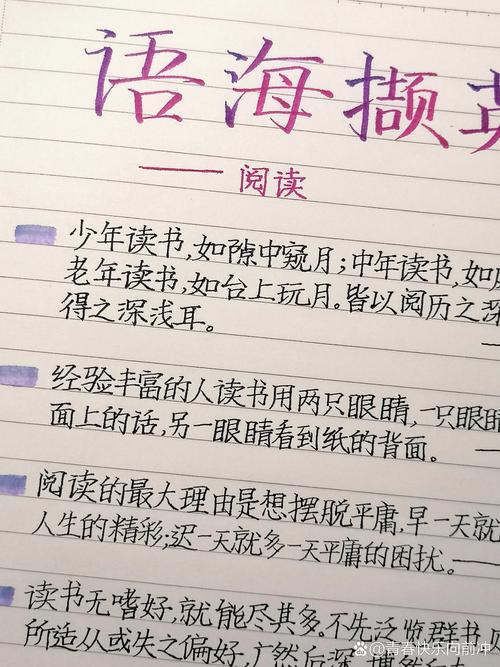 语海撷英
——阅读
少年读书,如隙中窥月;中年读书,如
老年读书,如台上玩月。皆以阅历之深
得之深浅耳。
经验丰富的人读书用两只眼睛,一只眼睛
面上的话,另一眼睛看到纸的背面。
阅读的最大理由是想摆脱平庸,早一天就
人生的精彩;迟一天就多一天平庸的困扰。—
读书无嗜好,就能尽其多。不先泛览群书,
所适从或失之偏好,广然后深,博然后
@青春快乐向前冲